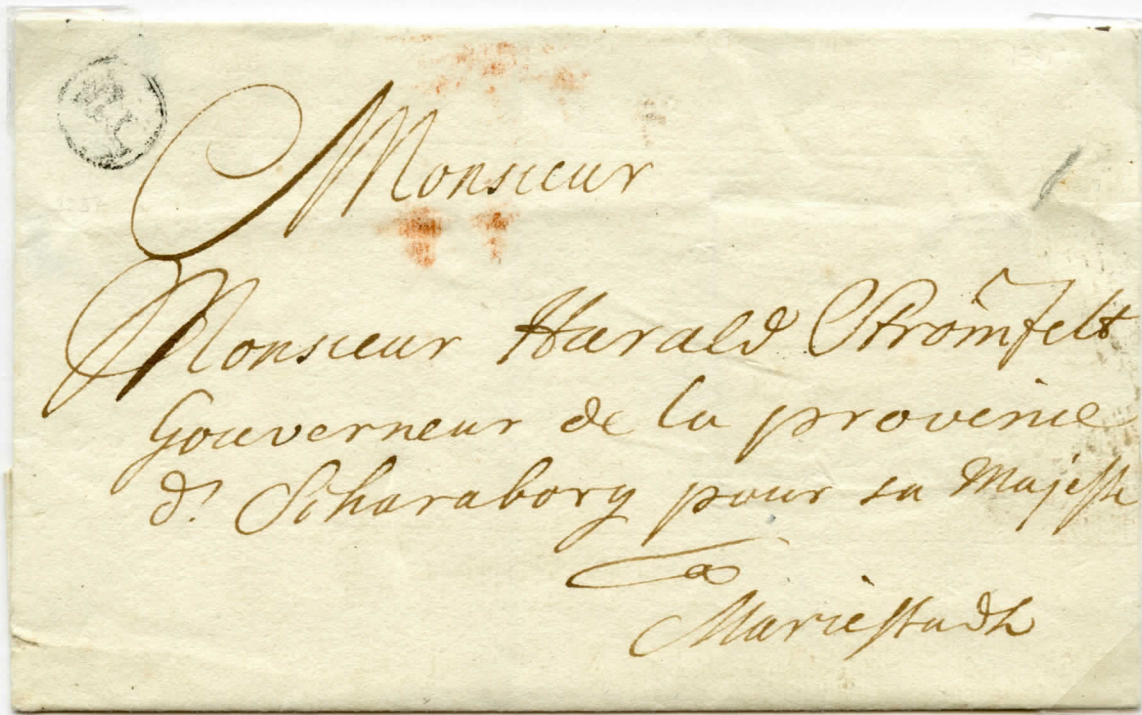 Monsieur
Monsieur Harald Strömfelt
Gouverneur de la province
d'Scharaborg pour sa Majesté
a
Mariestadh